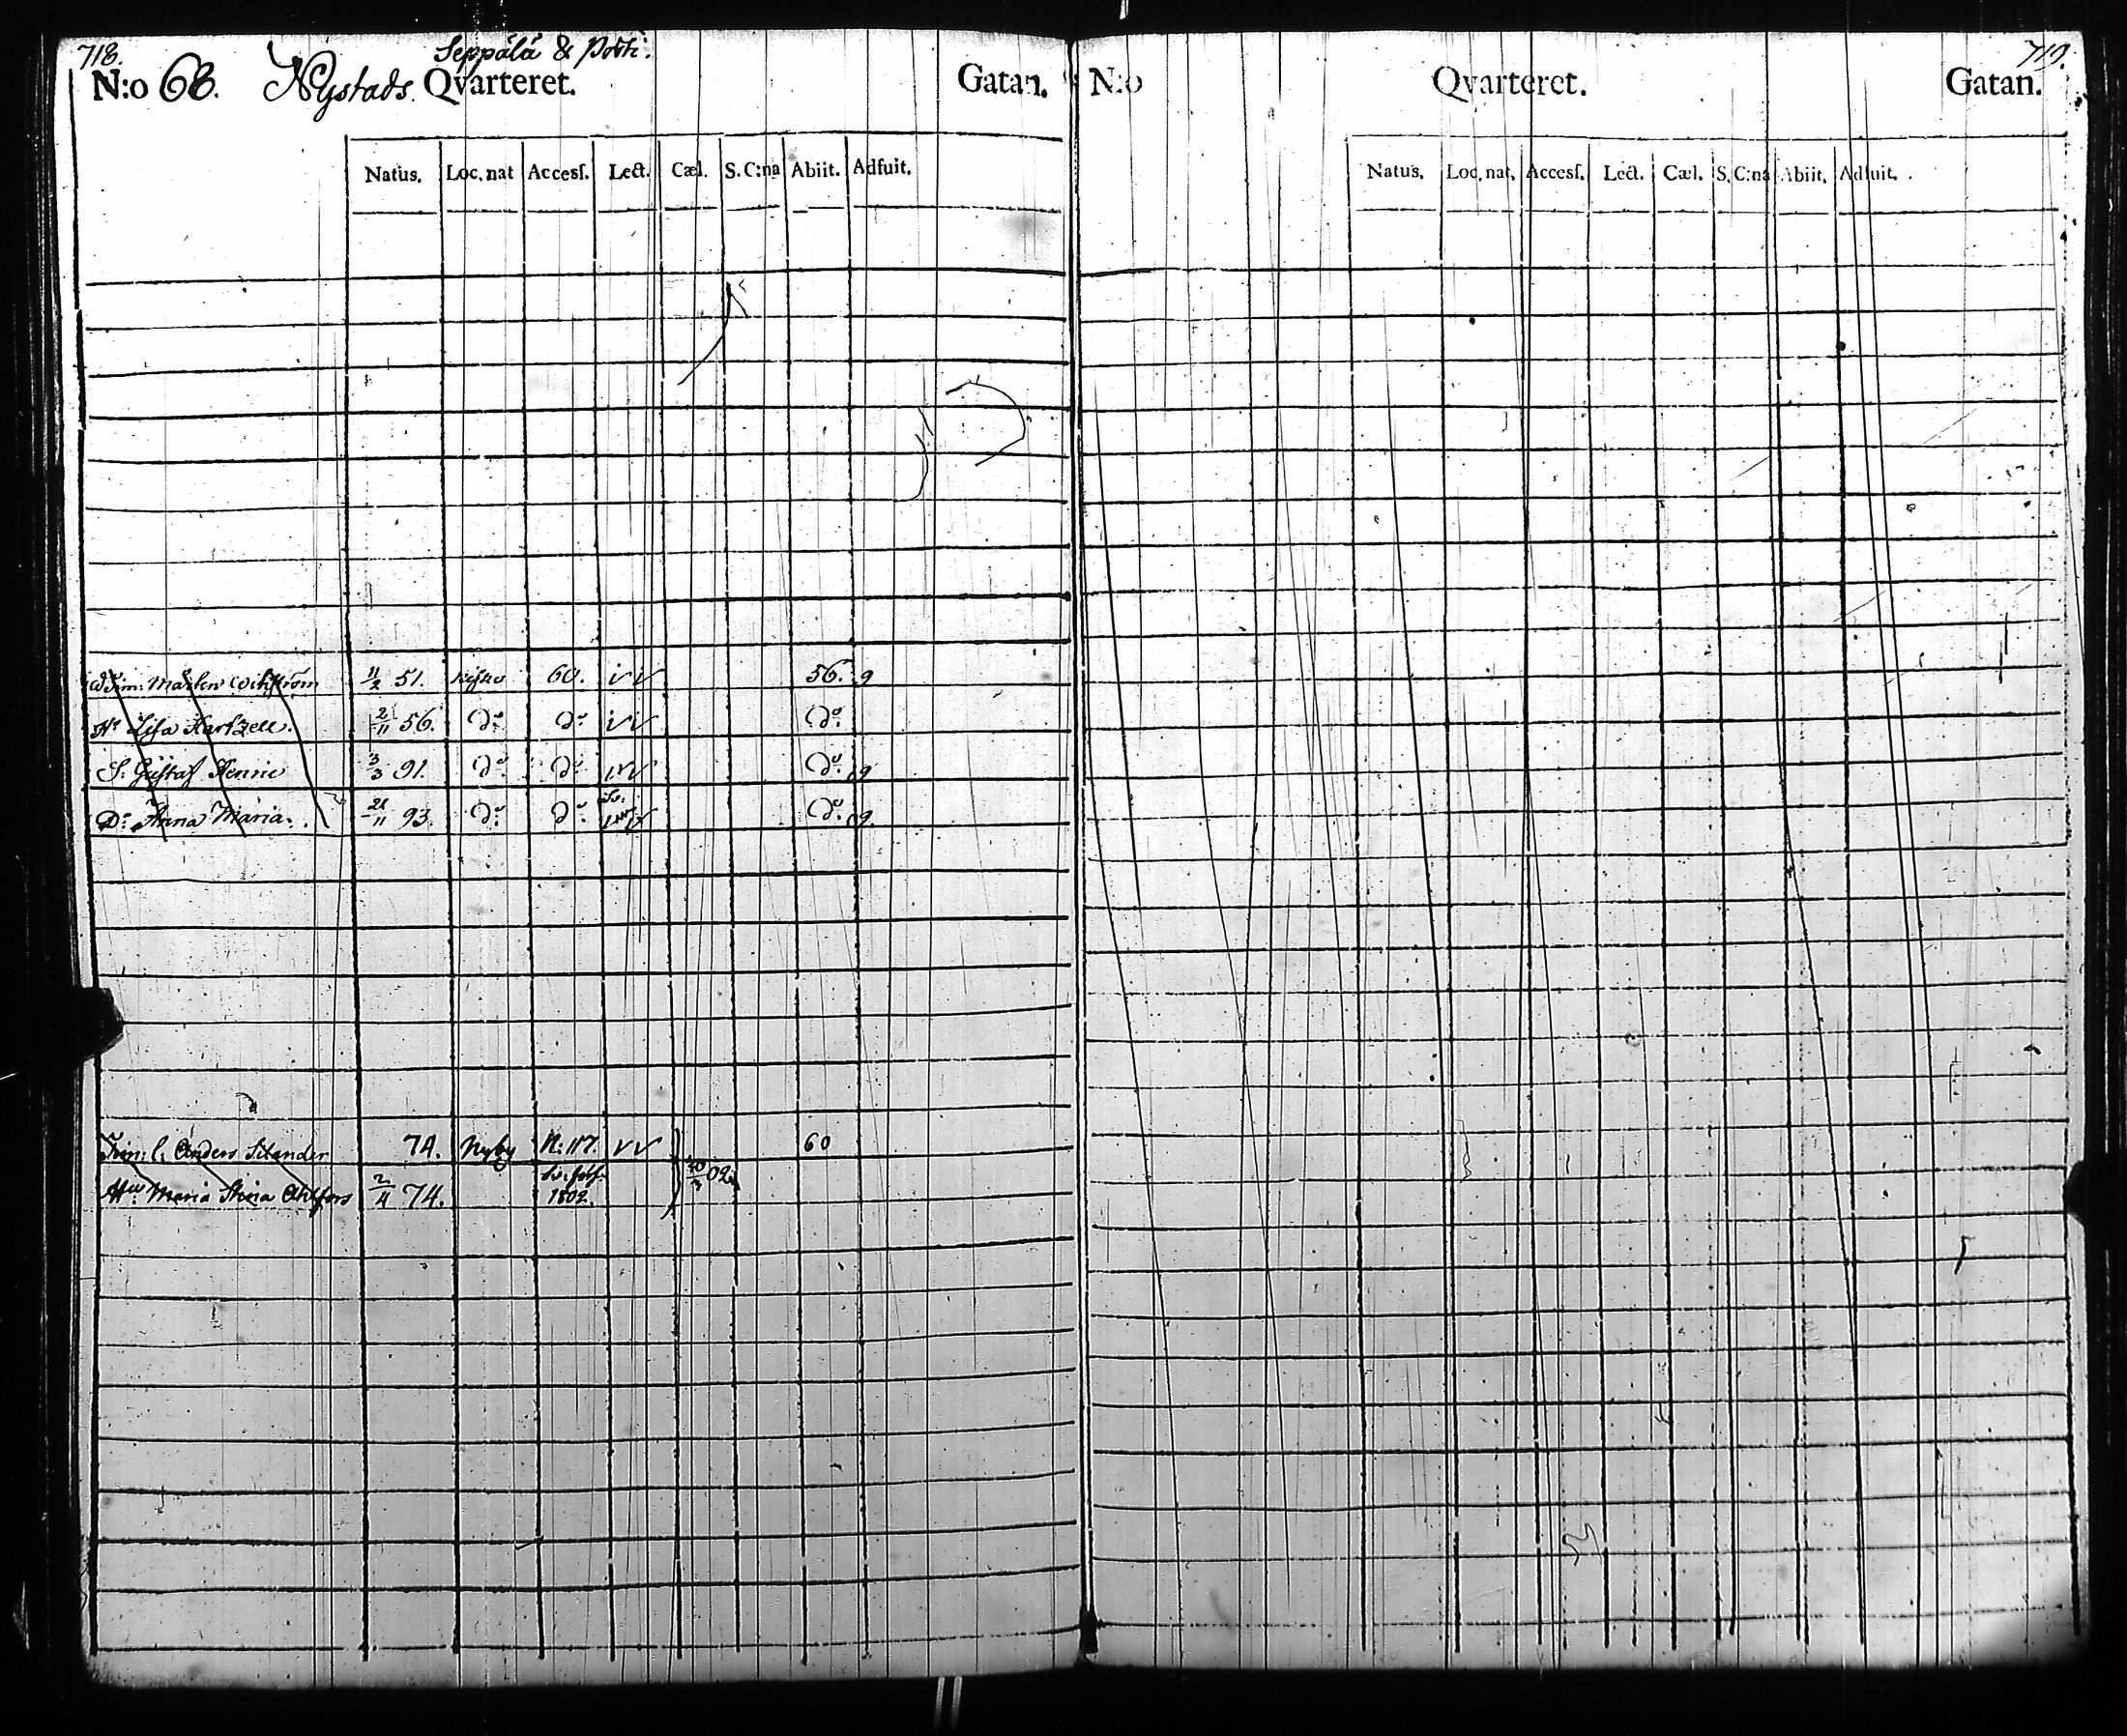 718.
Seppälä & Pošti.
N:o 68. Nystads Qvarteret. Gatan.
Natus. Loc. nat Accesſ. Lect. Cæl. S. C:na Abiit. Adfuit.
Mårten Wikström 11/2 51. Kisko 60. 56. 9
H. Lisa Hartzell. 2/11 56. Do Do Do
S. Gustaf Henric 3/3 91. Do Do Do 9
Dr Anna Maria. 21/11 93. Do Do Do 9
Tim: l. Anders Silander 74. Nyby N: 117. 60
Hu Maria Stina Ahlfors 2/4 74. 1802. 02.
719.
N:o Qvarteret. Gatan.
Natus. Loc. nat. Accesſ. Lect. Cæl. S. C:na Abiit. Adfuit.